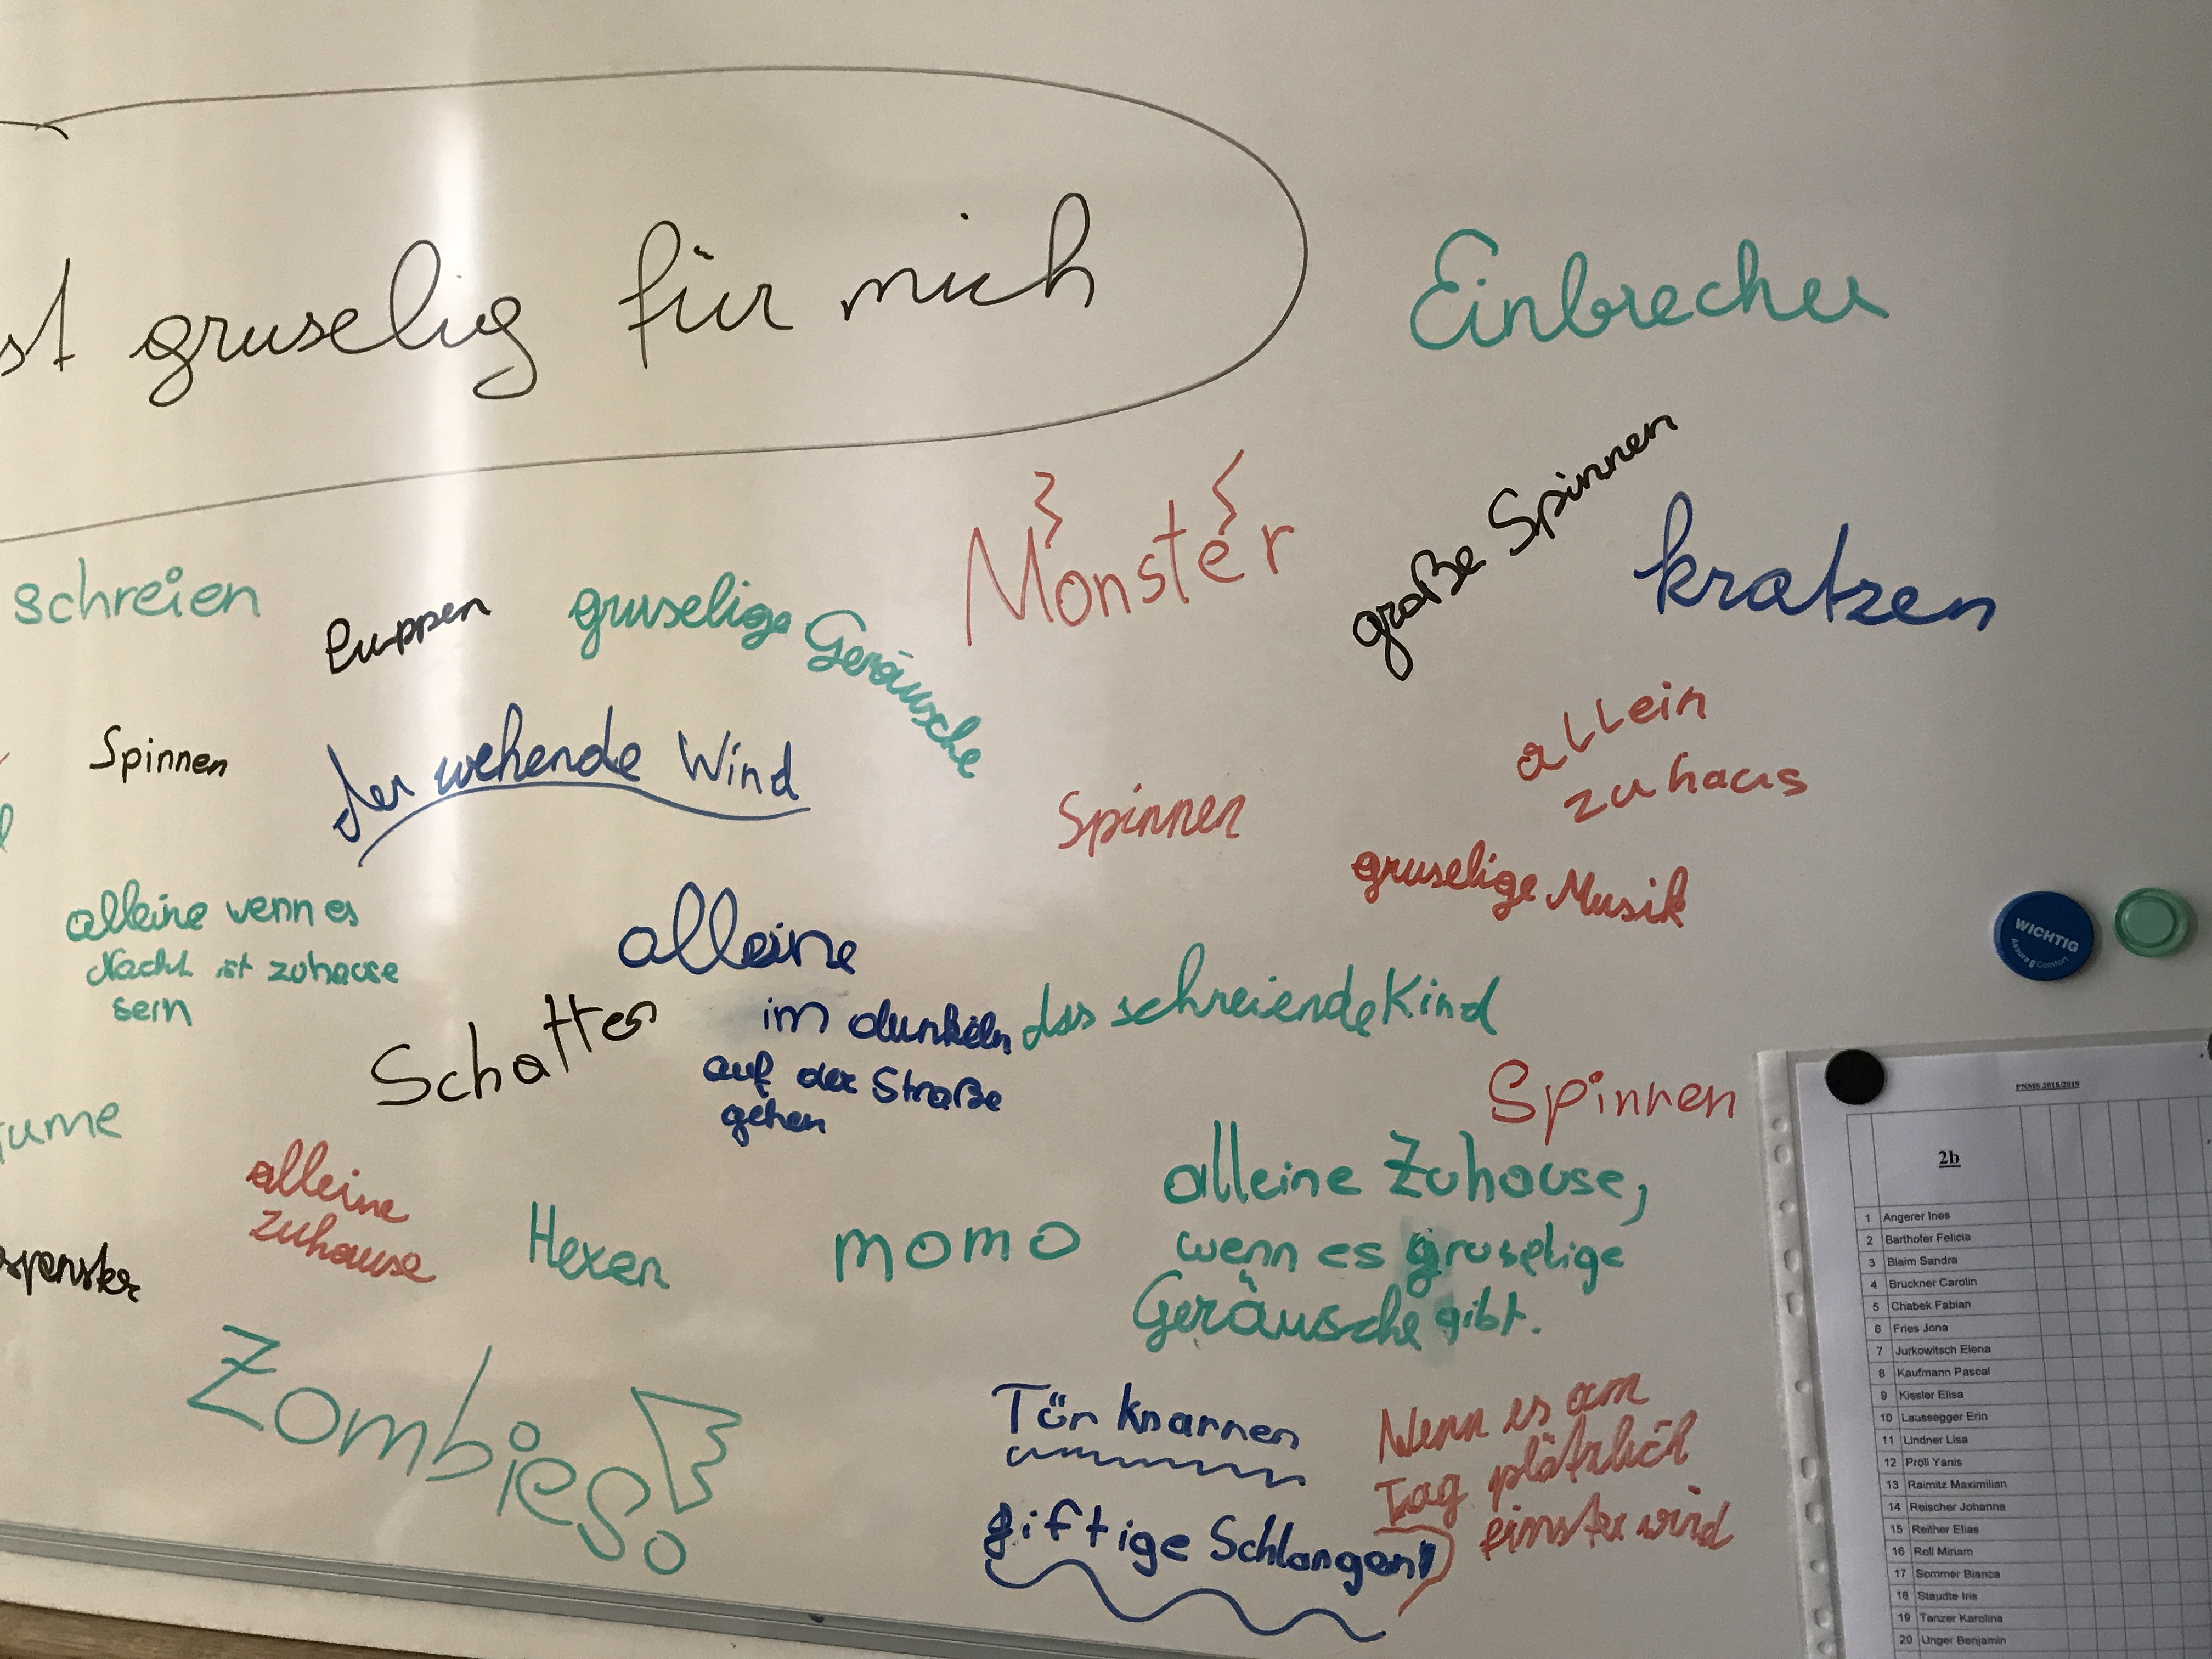 gruselig für mich
Einbrecher
große Spinnen
Monster
kratzen
schreien
Puppen
gruselige Geräusche
allein
zuhaus
Spinnen
der wehende Wind
Spinnen
gruselige Musik
alleine wenn es
Nacht ist zuhause
sein
alleine
im dunkeln
auf der Straße
gehen
das schreiende Kind
Schatten
Spinnen
alleine
zuhause
Hexen
momo
alleine Zuhause,
wenn es gruselige
Geräusche gibt.
Zombies!
Tür knarren
giftige Schlangen!
Wenn es am
Tag plötzlich
finster wird
WICHTIG
PNMS 2018/2019
2b
1 Angerer Ines
2 Barthofer Felicia
3 Blaim Sandra
4 Bruckner Carolin
5 Chabek Fabian
6 Fries Jona
7 Jurkowitsch Elena
8 Kaufmann Pascal
9 Kissler Elisa
10 Laussegger Erin
11 Lindner Lisa
12 Pröll Yanis
13 Raimitz Maximilian
14 Reischer Johanna
15 Reither Elias
16 Roll Miriam
17 Sommer Bianca
18 Staudte Iris
19 Tanzer Karolina
20 Unger Benjamin